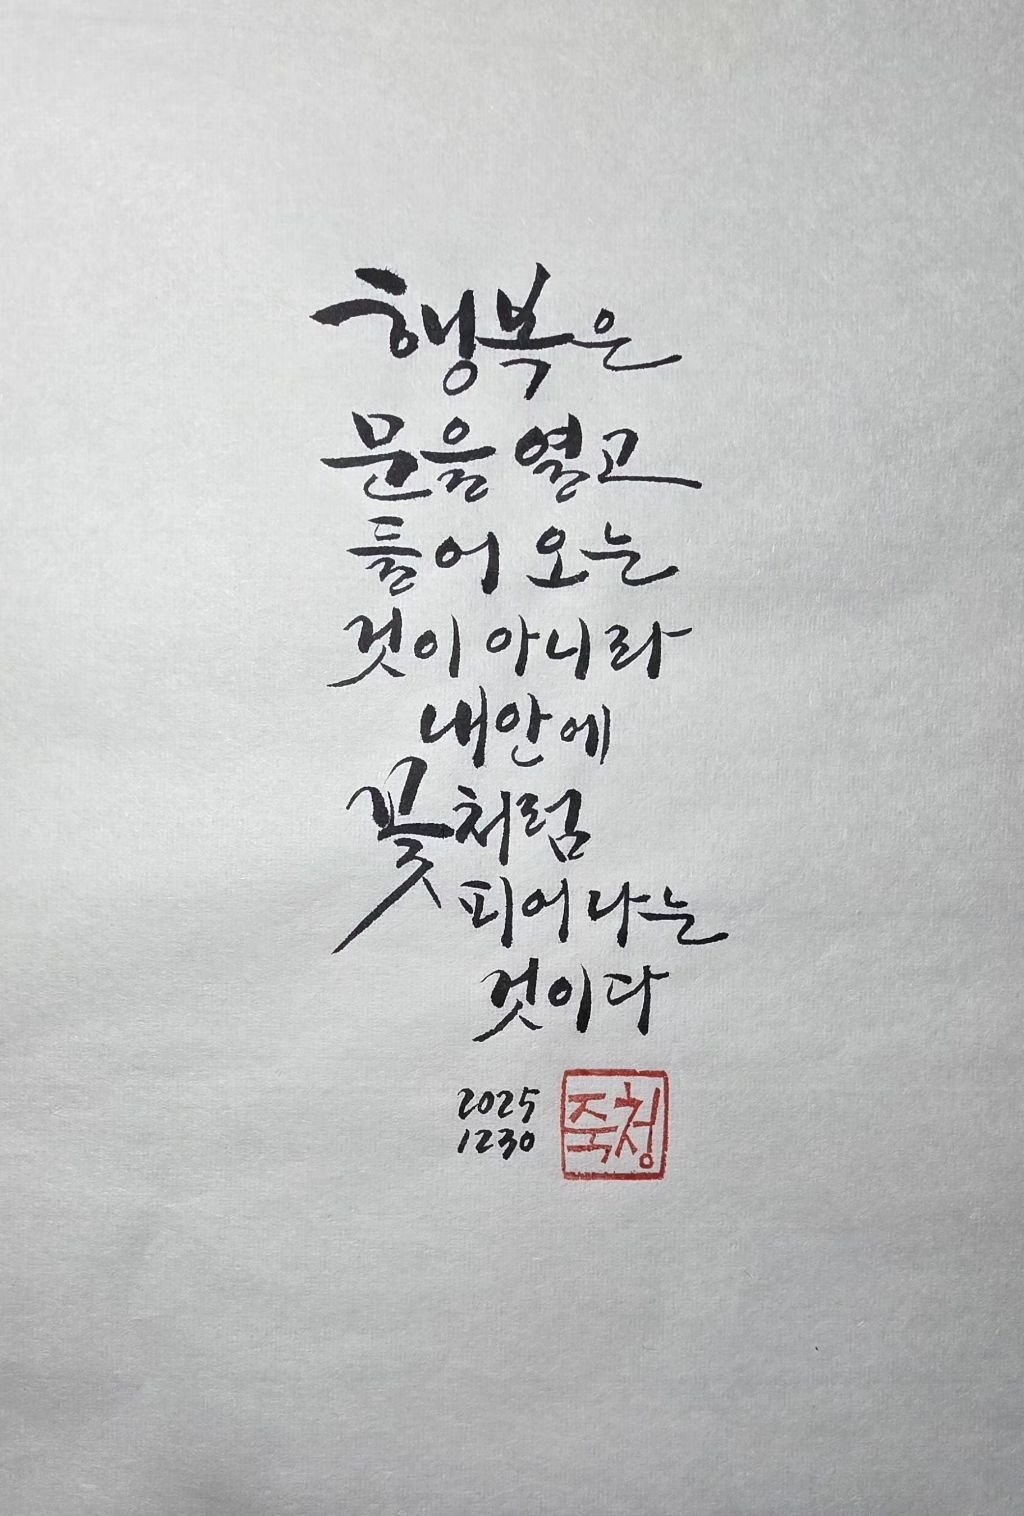 행복은
문을 열고
들어 오는
것이 아니라
내안에
꽃처럼
피어나는
것이다
2025
1230
죽청